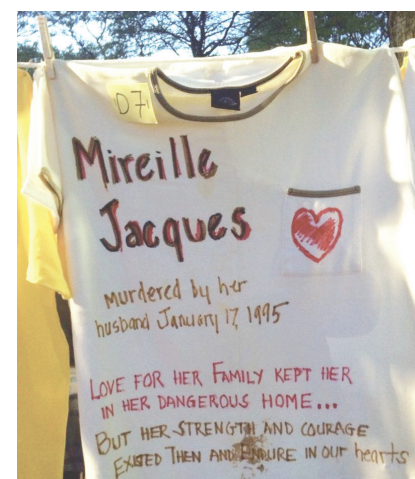 D7
Mireille
Jacques
murdered by her
husband January 17, 1995
LOVE FOR HER FAMILY KEPT HER
IN HER DANGEROUS HOME...
BUT HER STRENGTH AND COURAGE
EXISTED THEN AND ENDURE IN OUR hearts